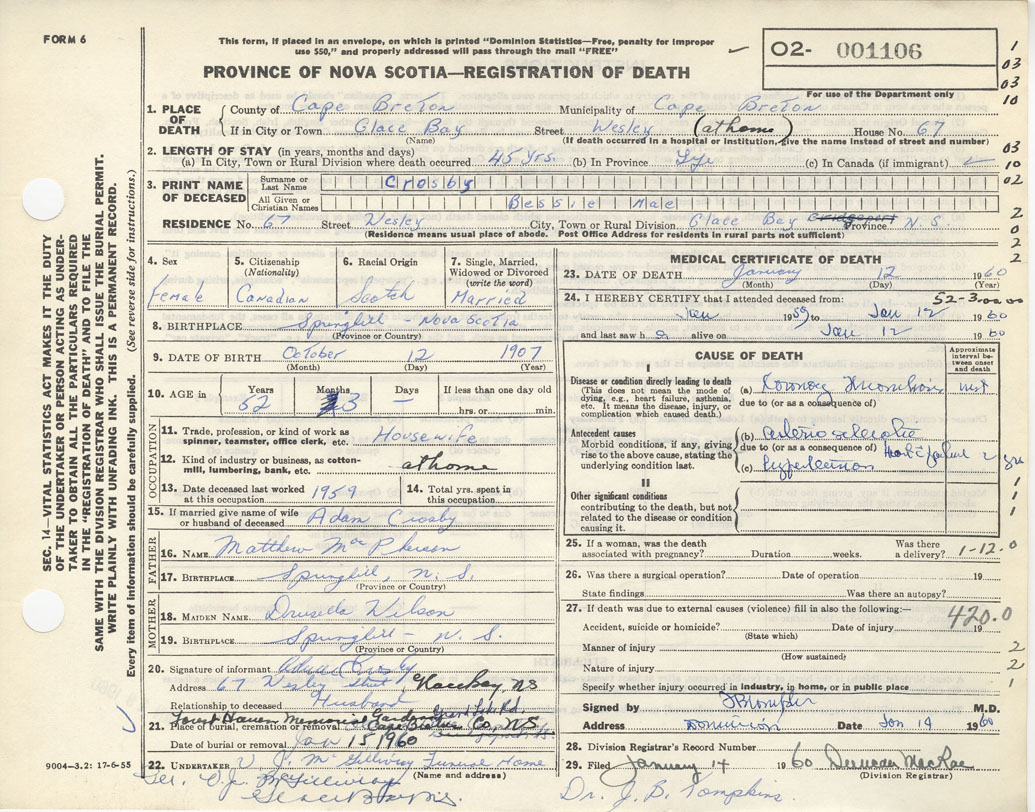 FORM 6
This form, if placed in an envelope, on which is printed "Dominion Statistics—Free, penalty for improper
use $50," and properly addressed will pass through the mail "FREE"
02- 001106
For use of the Department only
PROVINCE OF NOVA SCOTIA—REGISTRATION OF DEATH
1
03
03
10
1. PLACE OF DEATH County of Cape Breton Municipality of Cape Breton
If in City or Town Glace Bay Street Wesley (at home) House No. 67
(Name) (If death occurred in a hospital or institution, give the name instead of street and number)
2. LENGTH OF STAY (in years, months and days)
03
(a) In City, Town or Rural Division where death occurred 45 yrs. (b) In Province Life (c) In Canada (if immigrant)
10
3. PRINT NAME OF DECEASED Surname or Last Name Crosby
02
All Given or Christian Names Bessie Mae
RESIDENCE No. 67 Street Wesley City, Town or Rural Division Glace Bay Province N.S.
(Residence means usual place of abode. Post Office Address for residents in rural parts not sufficient)
2
0
2
2
SEC. 14—VITAL STATISTICS ACT MAKES IT THE DUTY
OF THE UNDERTAKER OR PERSON ACTING AS UNDER-
TAKER TO OBTAIN ALL THE PARTICULARS REQUIRED
IN THE "REGISTRATION OF DEATH" AND TO FILE THE
SAME WITH THE DIVISION REGISTRAR WHO SHALL ISSUE THE BURIAL PERMIT.
WRITE PLAINLY WITH UNFADING INK. THIS IS A PERMANENT RECORD.
Every item of information should be carefully supplied. (See reverse side for instructions.)
4. Sex
Female
5. Citizenship
(Nationality)
Canadian
6. Racial Origin
Scotch
7. Single, Married,
Widowed or Divorced
(write the word)
Married
8. BIRTHPLACE Springhill - Nova Scotia
(Province or Country)
9. DATE OF BIRTH October 12 1907
(Month) (Day) (Year)
10. AGE in Years 52 Months 3 Days — If less than one day old
hrs. or min.
OCCUPATION
11. Trade, profession, or kind of work as
spinner, teamster, office clerk, etc. Housewife
12. Kind of industry or business, as cotton-
mill, lumbering, bank, etc. at home
13. Date deceased last worked
at this occupation 1959
14. Total yrs. spent in
this occupation
15. If married give name of wife
or husband of deceased Adam Crosby
FATHER
16. NAME Matthew MacPherson
17. BIRTHPLACE Springhill, N.S.
(Province or Country)
MOTHER
18. MAIDEN NAME Drusilla Wilson
19. BIRTHPLACE Springhill - N.S.
(Province or Country)
20. Signature of informant Adam Crosby
Address 67 Wesley Street Glace Bay, NS
Relationship to deceased Husband
Forest Haven Memorial Gardens
21. Place of burial, cremation or removal Cape Breton Co NS
Date of burial or removal Jan 15 1960
22. UNDERTAKER V. J. McGillivray Funeral Home
(Name and address)
V.J. McGillivray
Glace Bay N.S.
9004—3.2: 17-6-55
MEDICAL CERTIFICATE OF DEATH
23. DATE OF DEATH January 12 1960
(Month) (Day)
24. I HEREBY CERTIFY that I attended deceased from:
52-3
Jan 1959 to Jan 12 1960
and last saw h alive on Jan 12 1960
CAUSE OF DEATH
Approximate
interval be-
tween onset
and death
I
Disease or condition directly leading to death
(This does not mean the mode of
dying, e.g., heart failure, asthenia,
etc. It means the disease, injury, or
complication which caused death.)
(a) Coronary Thrombosis inst
due to (or as a consequence of)
Antecedent causes
Morbid conditions, if any, giving
rise to the above cause, stating the
underlying condition last.
(b) arteriosclerotic
due to (or as a consequence of) Heart failure 2 yrs
(c) Hypertension
II
Other significant conditions
contributing to the death, but not
related to the disease or condition
causing it.
1
1
1
1
25. If a woman, was the death
associated with pregnancy? Duration weeks. Was there
a delivery? 1-12.0
26. Was there a surgical operation? Date of operation 19
State findings Was there an autopsy?
27. If death was due to external causes (violence) fill in also the following:—
420.0
Accident, suicide or homicide? Date of injury 19
(State which)
Manner of injury 2
(How sustained)
Nature of injury 2
Specify whether injury occurred in industry, in home, or in public place 1
Signed by JBTompkins M.D.
Address Dominion Date Jan 14 1960
28. Division Registrar's Record Number
29. Filed January 14 1960 Duncan MacRae
(Division Registrar)
Dr. J. B. Tompkins.